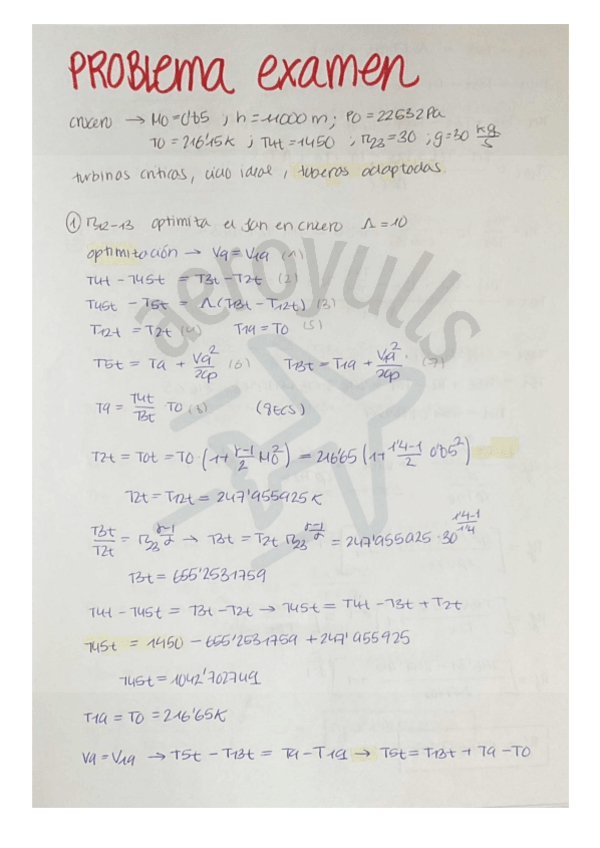 PROBLEMA EXAMEN
crucero → M0 = 0'85 ; h = 11000 m ; P0 = 22632 Pa
T0 = 216'15 K ; T4t = 1450 ; π23 = 30 ; g = 30 kg/s
turbinas críticas, ciclo ideal, toberas adaptadas.
① π12-13 optimita el fan en crucero Λ = 10
optimitación → V9 = V19 (1)
T4t - T45t = T3t - T2t (2)
T45t - T5t = Λ (T13t - T12t) (3)
T12t = T2t (4) T19 = T0 (5)
T5t = T9 + V9²/2cp (6) T13t = T19 + V19²/2cp (7)
T9 = T4t/T3t T0 (8) (8 ecs)
T2t = T0t = T0 · (1 + γ-1/2 M0²) = 216'65 (1 + 1'4-1/2 0'85²)
T2t = T12t = 247'955925 K
T3t/T2t = π23^γ-1/γ → T3t = T2t π23^γ-1/γ = 247'955925 · 30^1'4-1/1'4
T3t = 655'2531759
T4t - T45t = T3t - T2t → T45t = T4t - T3t + T2t
T45t = 1450 - 655'2531759 + 247'955925
T45t = 1042'702749
T19 = T0 = 216'65 K
V9 = V19 → T5t - T13t = T9 - T19 → T5t = T13t + T9 - T0
aeroyulls